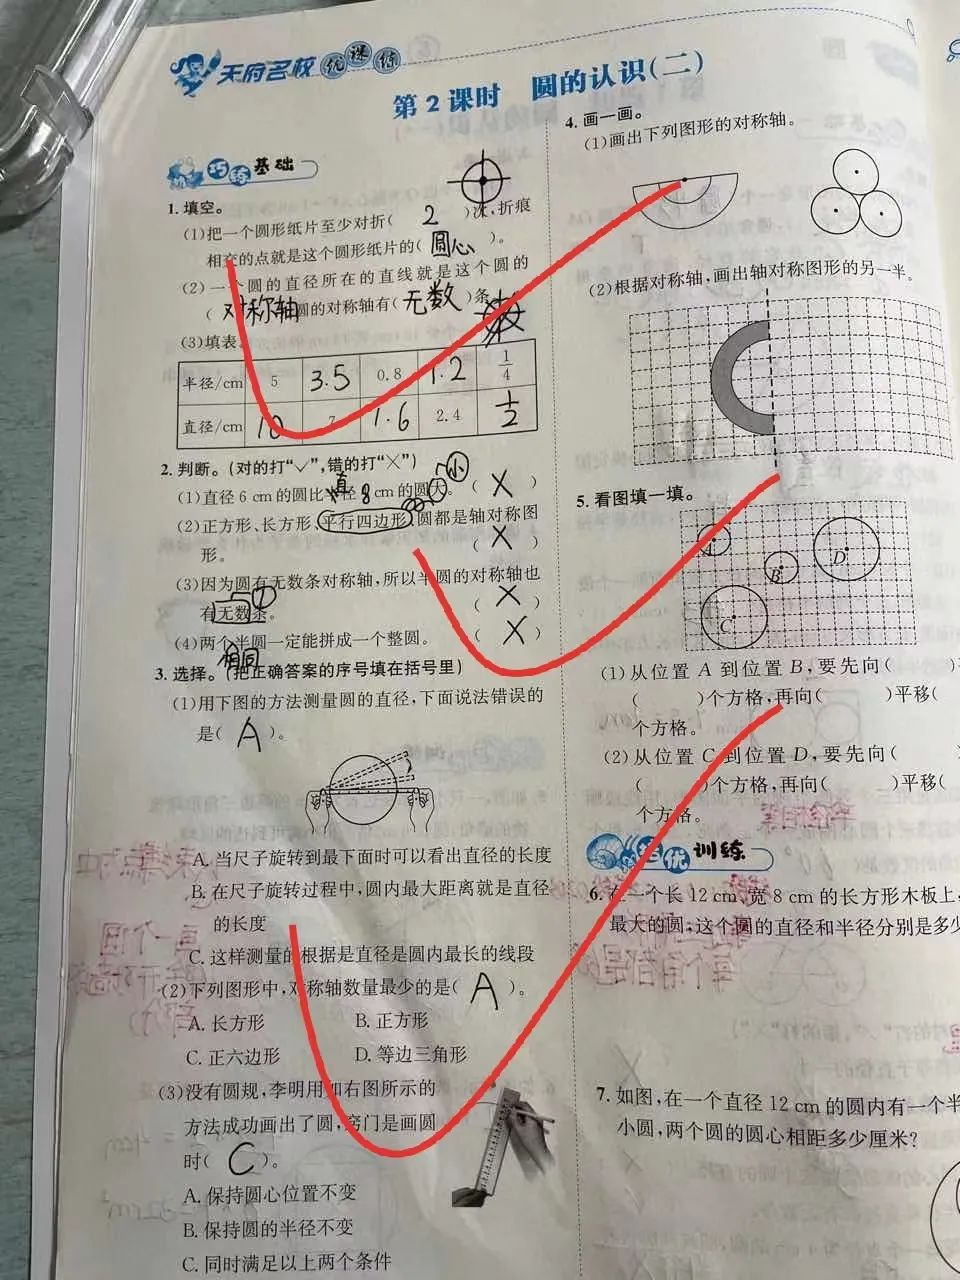 天府名校优课练
第2课时 圆的认识(二)
巧练 基础
1. 填空。
(1)把一个圆形纸片至少对折( 2 )次,折痕
相交的点就是这个圆形纸片的( 圆心 )。
(2)一个圆的直径所在的直线就是这个圆的
( 对称轴 圆的对称轴有( 无数 )条
(3)填表
半径/cm 5 3.5 0.8 1.2 1/4
直径/cm 10 7 1.6 2.4 1/2
2. 判断。(对的打“✓”,错的打“×”)
小
直
(1)直径 6 cm 的圆比半径 8 cm 的圆大。( × )
(2)正方形、长方形、平行四边形、圆都是轴对称图
形。 ( × )
(3)因为圆有无数条对称轴,所以半圆的对称轴也
有无数条。 ( × )
(4)两个半圆一定能拼成一个整圆。 ( × )
相同
3. 选择。(把正确答案的序号填在括号里)
(1)用下图的方法测量圆的直径,下面说法错误的
是( A )。
A. 当尺子旋转到最下面时可以看出直径的长度
B. 在尺子旋转过程中,圆内最大距离就是直径
的长度
C. 这样测量的根据是直径是圆内最长的线段
(2)下列图形中,对称轴数量最少的是( A )。
A. 长方形 B. 正方形
C. 正六边形 D. 等边三角形
(3)没有圆规,李明用如右图所示的
方法成功画出了圆,窍门是画圆
时( C )。
A. 保持圆心位置不变
B. 保持圆的半径不变
C. 同时满足以上两个条件
4. 画一画。
(1)画出下列图形的对称轴。
(2)根据对称轴,画出轴对称图形的另一半。
5. 看图填一填。
A
B
C
D
(1)从位置 A 到位置 B,要先向( )
( )个方格,再向( )平移(
个方格。
(2)从位置 C 到位置 D,要先向( )
( )个方格,再向( )平移(
个方格。
培优 训练
6. 在一个长 12 cm、宽 8 cm 的长方形木板上,
最大的圆,这个圆的直径和半径分别是多少
7. 如图,在一个直径 12 cm 的圆内有一个半
小圆,两个圆的圆心相距多少厘米?